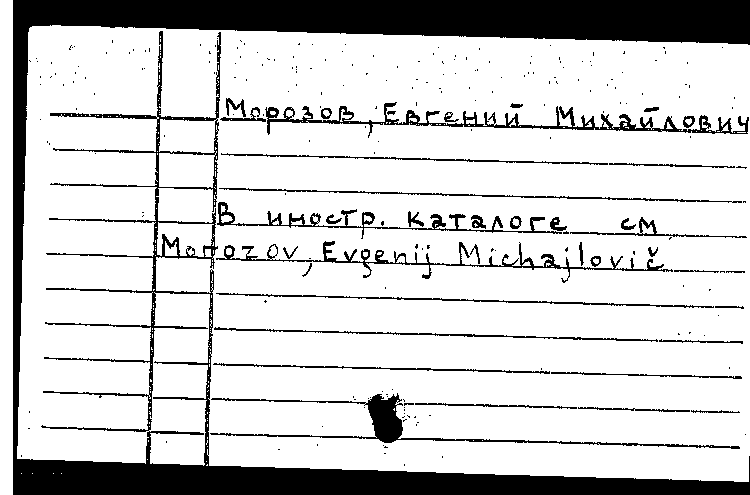 Морозов, Евгений Михайлович
В иностр. каталоге см
Morozov, Evgenij Michajlovič